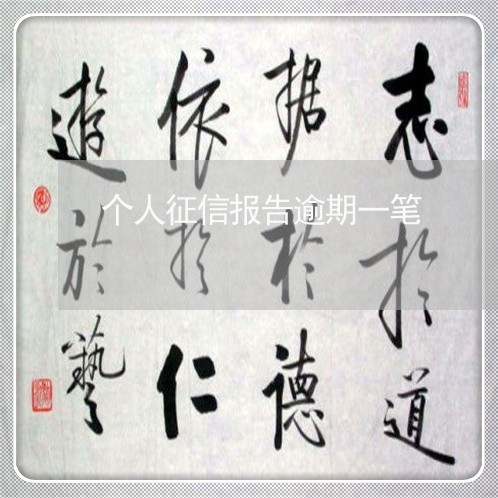 志於道
据於德
依於仁
遊於藝
个人征信报告逾期一笔